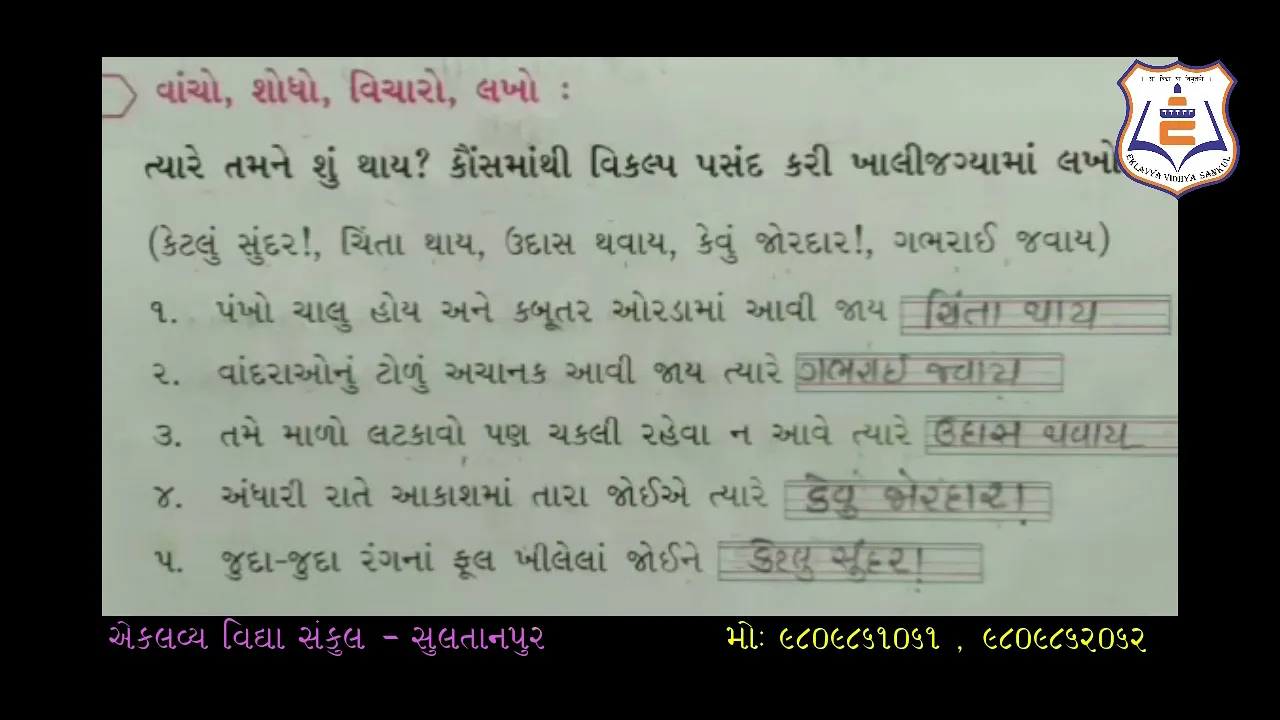 વાંચો, શોધો, વિચારો, લખો :
ત્યારે તમને શું થાય? કૌંસમાંથી વિકલ્પ પસંદ કરી ખાલીજગ્યામાં લખો
(કેટલું સુંદર!, ચિંતા થાય, ઉદાસ થવાય, કેવું જોરદાર!, ગભરાઈ જવાય)
૧. પંખો ચાલુ હોય અને કબૂતર ઓરડામાં આવી જાય ચિંતા થાય
૨. વાંદરાઓનું ટોળું અચાનક આવી જાય ત્યારે ગભરાઈ જવાય
૩. તમે માળો લટકાવો પણ ચકલી રહેવા ન આવે ત્યારે ઉદાસ થવાય
૪. અંધારી રાતે આકાશમાં તારા જોઈએ ત્યારે કેવું જોરદાર!
૫. જુદા-જુદા રંગનાં ફૂલ ખીલેલાં જોઈને કેટલુ સુંદર!
EKLAVYA VIDHYA SANKUL
એકલવ્ય વિદ્યા સંકુલ - સુલતાનપુર
મોઃ ૯૮૦૯૮૬૧૦૬૧ , ૯૮૦૯૮૬૨૦૬૨